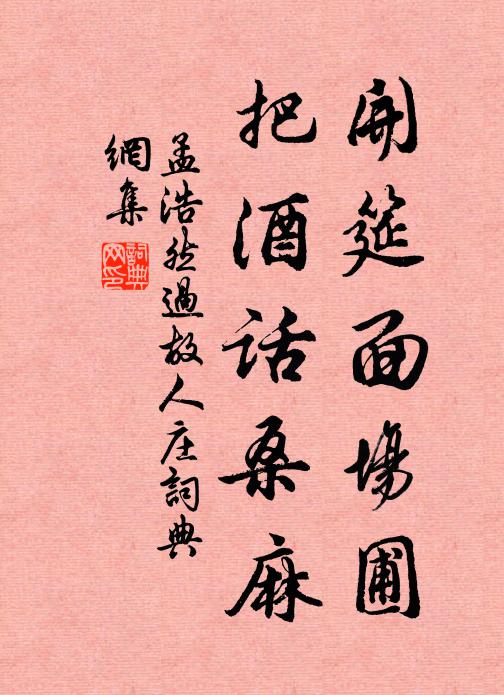 開筵面場圃
把酒話桑麻
孟浩然過故人庄詞典
網集
詞典
网印